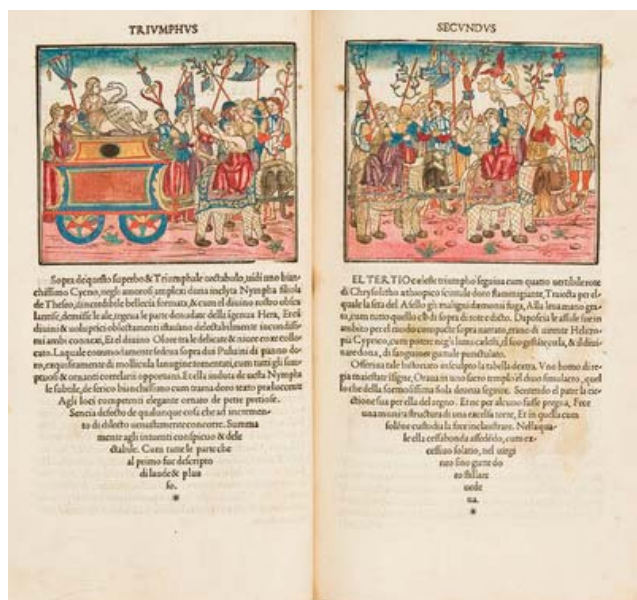 TRIVMPHVS
Sopra de questo superbo & Triumphale uectabulo, uidi uno bian-
chissimo Cycno, negli amorosi amplexi duna inclyta Nympha filiola
de Theseo, dincredibile bellecia formata, & cum el diuino rostro obscu
lantise, demisse le ale, tegeua le parte denudate della igenua Hera, Et cū
diuini & uoluptici oblectamenti istauano delectabilmente iucundissi-
mi ambi connexi, Et el diuino Olore tra le delicate & niuee coxe colloca-
to. Laquale commodamente sedeua sopra dui Puluini di panno doro,
exquisitamente di mollicula lanugine tomentati, cum tutti gli sum
ptuosi & ornanti correlarii opportuni. Et ella induta de uesta Nympha
le subtile, de serico bianchissimo cum trama doro texto prælucente
Agli loci competenti elegante ornato de petre pretiose.
Sencia defecto de qualunque cosa che ad incremen-
to di dilecto uenustamente concorre. Summa
mente agli intuenti conspicuo & dele
ctabile. Cum tutte le parte che
al primo fue descripto
di laude & plau
so.
SECVNDVS
EL TERTIO cæleste triumpho seguiua cum quatro uertibile rote
di Chrysolitho æthiopico
quale la seta del Asello gli maligni dæmonii fuga, Alla leua mano gra-
to, cum tutto quello di sopra di rote è dicto. Daposcia le assule sue in
ambito per el modo compacte sopra narrato, erano di uirente Helitro-
pia Cyprico, cum potere negli lumi cælesti, el suo gestāte cœla, & il diui-
nare dona, di sanguinee guttule punctulato.
Offeriua tale historiato insculpto la tabella dextra. Vno homo di re-
gia maiestate isigne, Oraua in uno sacro templo el diuo simulacro, quel
lo che della formosissima fiola deueua seguire. Sentendo el patre la eie-
ctione sua per ella del regno. Et ne per alcuno fusse pregna, Fece
una munita structura di una excelsa torre, Et in quella cum
solēne custodia la fece inclaustrare. Nella qua-
le ella cessabonda assedendo, cum ex-
cessiuo solatio, nel uirgi
neo sino gutte do
ro stillare
uede
ua.